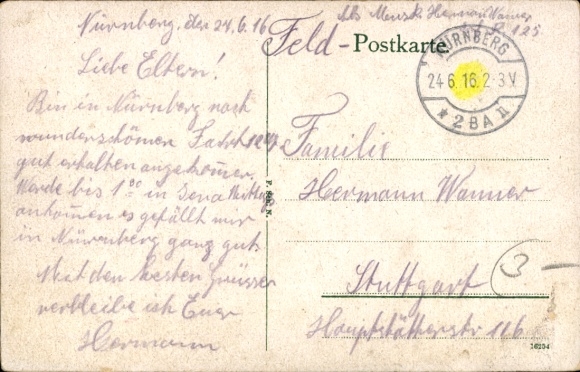 Nürnberg, den 24.6.16
Liebe Eltern!
Bin in Nürnberg nach
wunderschönen Fahrt 12
gut erhalten angekommen.
Werde bis 1 in Jena Mittag
ankommen es gefällt mir
in Nürnberg ganz gut
Mit den besten Grüssen
verbleibe ich Euer
Hermann
Abs. Hermann Wanner
125
Feld-Postkarte
NÜRNBERG
24 6.16.2-3V
* 2 B A II
Familie
Hermann Wanner
Stuttgart
Hauptstätterstr 116
3
16234